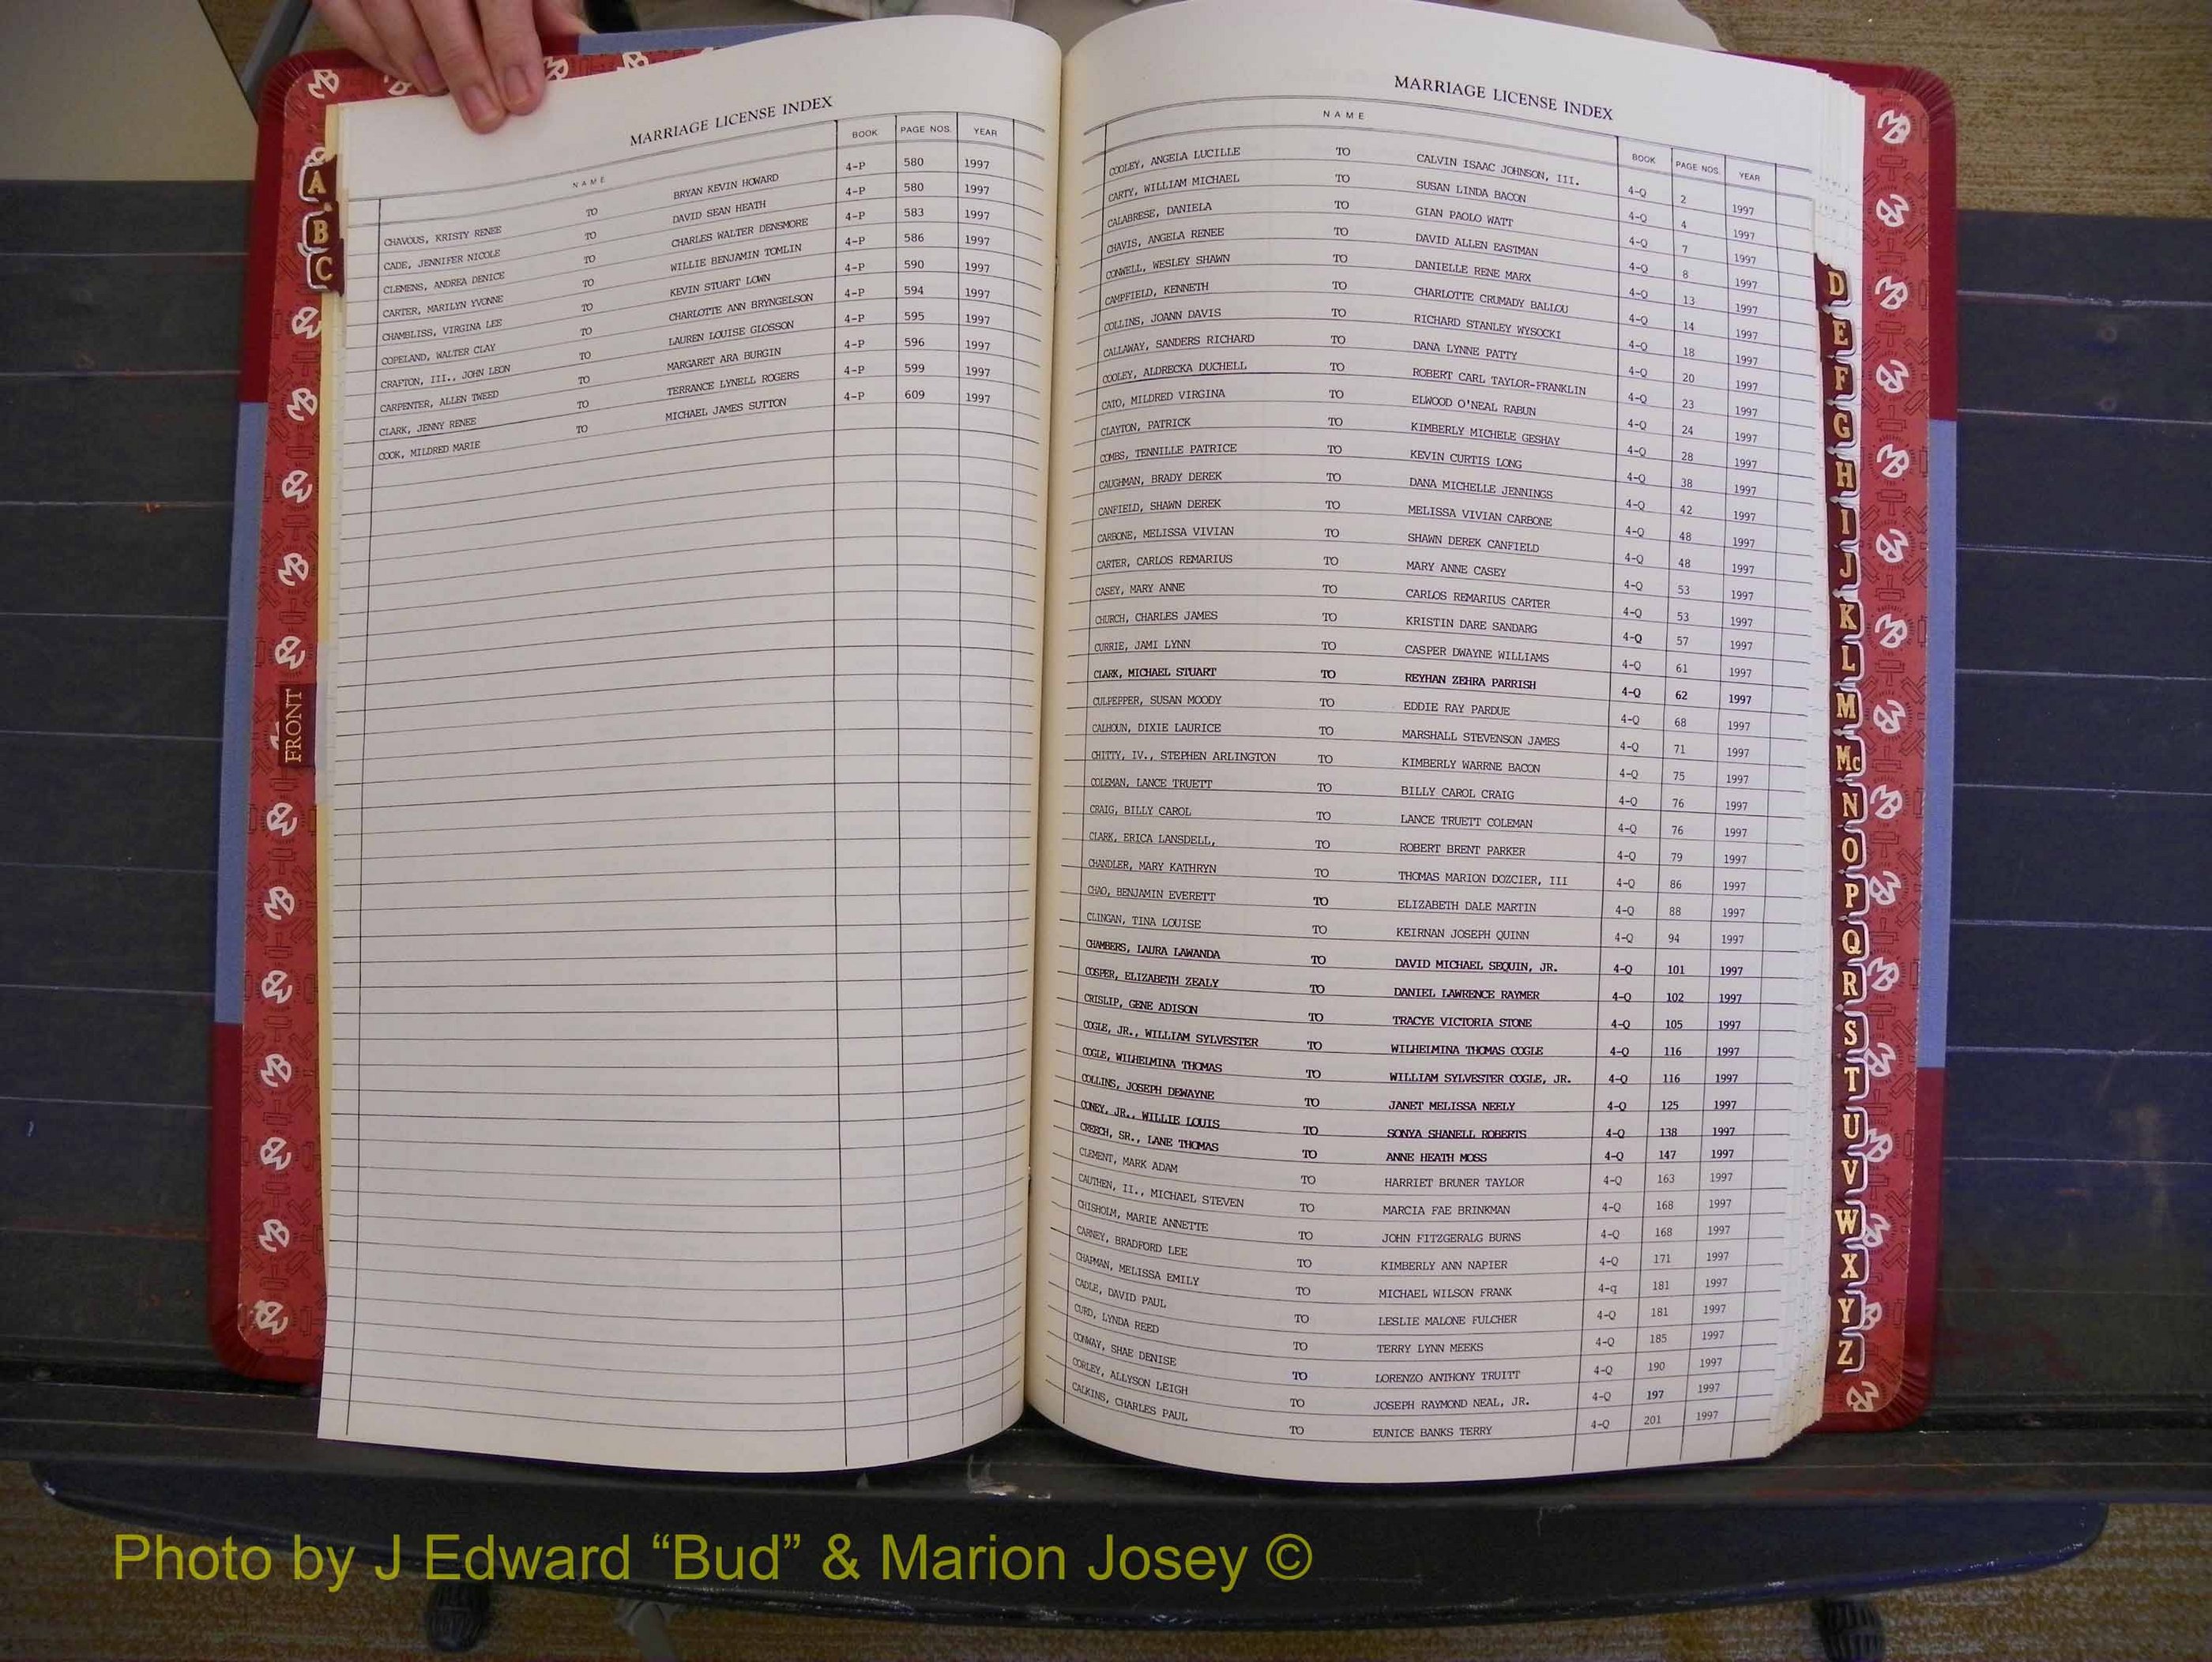 MARRIAGE LICENSE INDEX
NAME BOOK PAGE NOS. YEAR
CHAVOUS, KRISTY RENEE TO BRYAN KEVIN HOWARD 4-P 580 1997
CADE, JENNIFER NICOLE TO DAVID SEAN HEATH 4-P 580 1997
CLEMENS, ANDREA DENICE TO CHARLES WALTER DENSMORE 4-P 583 1997
CARTER, MARILYN YVONNE TO WILLIE BENJAMIN TOMLIN 4-P 586 1997
CHAMBLISS, VIRGINA LEE TO KEVIN STUART LOWN 4-P 590 1997
COPELAND, WALTER CLAY TO CHARLOTTE ANN BRYNGELSON 4-P 594 1997
CRAFTON, III., JOHN LEON TO LAUREN LOUISE GLOSSON 4-P 595 1997
CARPENTER, ALLEN TWEED TO MARGARET ARA BURGIN 4-P 596 1997
CLARK, JENNY RENEE TO TERRANCE LYNELL ROGERS 4-P 599 1997
COOK, MILDRED MARIE TO MICHAEL JAMES SUTTON 4-P 609 1997
A
B
C
FRONT
MARRIAGE LICENSE INDEX
NAME BOOK PAGE NOS. YEAR
COOLEY, ANGELA LUCILLE TO CALVIN ISAAC JOHNSON, III. 4-Q 2 1997
CARTY, WILLIAM MICHAEL TO SUSAN LINDA BACON 4-Q 4 1997
CALABRESE, DANIELA TO GIAN PAOLO WATT 4-Q 7 1997
CHAVIS, ANGELA RENEE TO DAVID ALLEN EASTMAN 4-Q 8 1997
CONWELL, WESLEY SHAWN TO DANIELLE RENE MARX 4-Q 13 1997
CAMPFIELD, KENNETH TO CHARLOTTE CRUMADY BALLOU 4-Q 14 1997
COLLINS, JOANN DAVIS TO RICHARD STANLEY WYSOCKI 4-Q 18 1997
CALLAWAY, SANDERS RICHARD TO DANA LYNNE PATTY 4-Q 20 1997
COOLEY, ALDRECKA DUCHELL TO ROBERT CARL TAYLOR-FRANKLIN 4-Q 23 1997
CATO, MILDRED VIRGINA TO ELWOOD O'NEAL RABUN 4-Q 24 1997
CLAYTON, PATRICK TO KIMBERLY MICHELE GESHAY 4-Q 28 1997
COMBS, TENNILLE PATRICE TO KEVIN CURTIS LONG 4-Q 38 1997
CAUGHMAN, BRADY DEREK TO DANA MICHELLE JENNINGS 4-Q 42 1997
CANFIELD, SHAWN DEREK TO MELISSA VIVIAN CARBONE 4-Q 48 1997
CARBONE, MELISSA VIVIAN TO SHAWN DEREK CANFIELD 4-Q 48 1997
CARTER, CARLOS REMARIUS TO MARY ANNE CASEY 4-Q 53 1997
CASEY, MARY ANNE TO CARLOS REMARIUS CARTER 4-Q 53 1997
CHURCH, CHARLES JAMES TO KRISTIN DARE SANDARG 4-Q 57 1997
CURRIE, JAMI LYNN TO CASPER DWAYNE WILLIAMS 4-Q 61 1997
CLARK, MICHAEL STUART TO REYHAN ZEHRA PARRISH 4-Q 62 1997
CULPEPPER, SUSAN MOODY TO EDDIE RAY PARDUE 4-Q 68 1997
CALHOUN, DIXIE LAURICE TO MARSHALL STEVENSON JAMES 4-Q 71 1997
CHITTY, IV., STEPHEN ARLINGTON TO KIMBERLY WARRNE BACON 4-Q 75 1997
COLEMAN, LANCE TRUETT TO BILLY CAROL CRAIG 4-Q 76 1997
CRAIG, BILLY CAROL TO LANCE TRUETT COLEMAN 4-Q 76 1997
CLARK, ERICA LANSDELL, TO ROBERT BRENT PARKER 4-Q 79 1997
CHANDLER, MARY KATHRYN TO THOMAS MARION DOZCIER, III 4-Q 86 1997
CHAO, BENJAMIN EVERETT TO ELIZABETH DALE MARTIN 4-Q 88 1997
CLINGAN, TINA LOUISE TO KEIRNAN JOSEPH QUINN 4-Q 94 1997
CHAMBERS, LAURA LAWANDA TO DAVID MICHAEL SEQUIN, JR. 4-Q 101 1997
COSPER, ELIZABETH ZEALY TO DANIEL LAWRENCE RAYMER 4-Q 102 1997
CRISLIP, GENE ADISON TO TRACYE VICTORIA STONE 4-Q 105 1997
COGLE, JR., WILLIAM SYLVESTER TO WILHELMINA THOMAS COGLE 4-Q 116 1997
COGLE, WILHELMINA THOMAS TO WILLIAM SYLVESTER COGLE, JR. 4-Q 116 1997
COLLINS, JOSEPH DEWAYNE TO JANET MELISSA NEELY 4-Q 125 1997
CONEY, JR., WILLIE LOUIS TO SONYA SHANELL ROBERTS 4-Q 138 1997
CREECH, SR., LANE THOMAS TO ANNE HEATH MOSS 4-Q 147 1997
CLEMENT, MARK ADAM TO HARRIET BRUNER TAYLOR 4-Q 163 1997
CAUTHEN, II., MICHAEL STEVEN TO MARCIA FAE BRINKMAN 4-Q 168 1997
CHISHOLM, MARIE ANNETTE TO JOHN FITZGERALG BURNS 4-Q 168 1997
CARNEY, BRADFORD LEE TO KIMBERLY ANN NAPIER 4-Q 171 1997
CHAPMAN, MELISSA EMILY TO MICHAEL WILSON FRANK 4-q 181 1997
CADLE, DAVID PAUL TO LESLIE MALONE FULCHER 4-Q 181 1997
CURD, LYNDA REED TO TERRY LYNN MEEKS 4-Q 185 1997
CONWAY, SHAE DENISE TO LORENZO ANTHONY TRUITT 4-Q 190 1997
CORLEY, ALLYSON LEIGH TO JOSEPH RAYMOND NEAL, JR. 4-Q 197 1997
CALKINS, CHARLES PAUL TO EUNICE BANKS TERRY 4-Q 201 1997
D
E
F
G
H
I
J
K
L
M
Mc
N
O
P
Q
R
S
T
U
V
W
X
Y
Z
Photo by J Edward “Bud” & Marion Josey ©